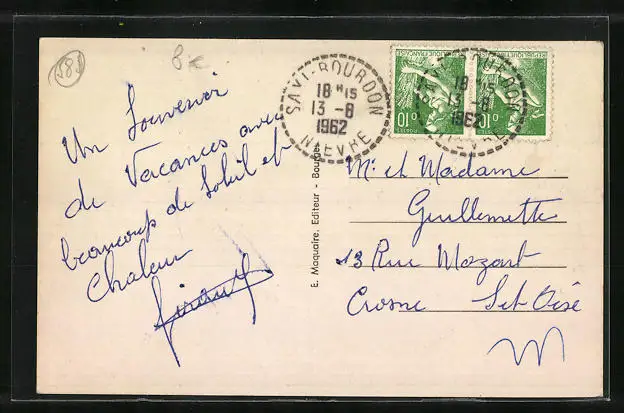 58J
8€
Un Souvenir
de Vacances avec
beaucoup de Soleil et
Chaleur
SAXI-BOURDON
18 H 15
13 - 8
1962
NIEVRE
REPUBLIQUE FRANÇAISE
10F
POSTES
10F
POSTES
E. Maquaire, Editeur - Bourges
Mr et Madame
Guillemette
13 Rue Mozart
Crosne Set Oise